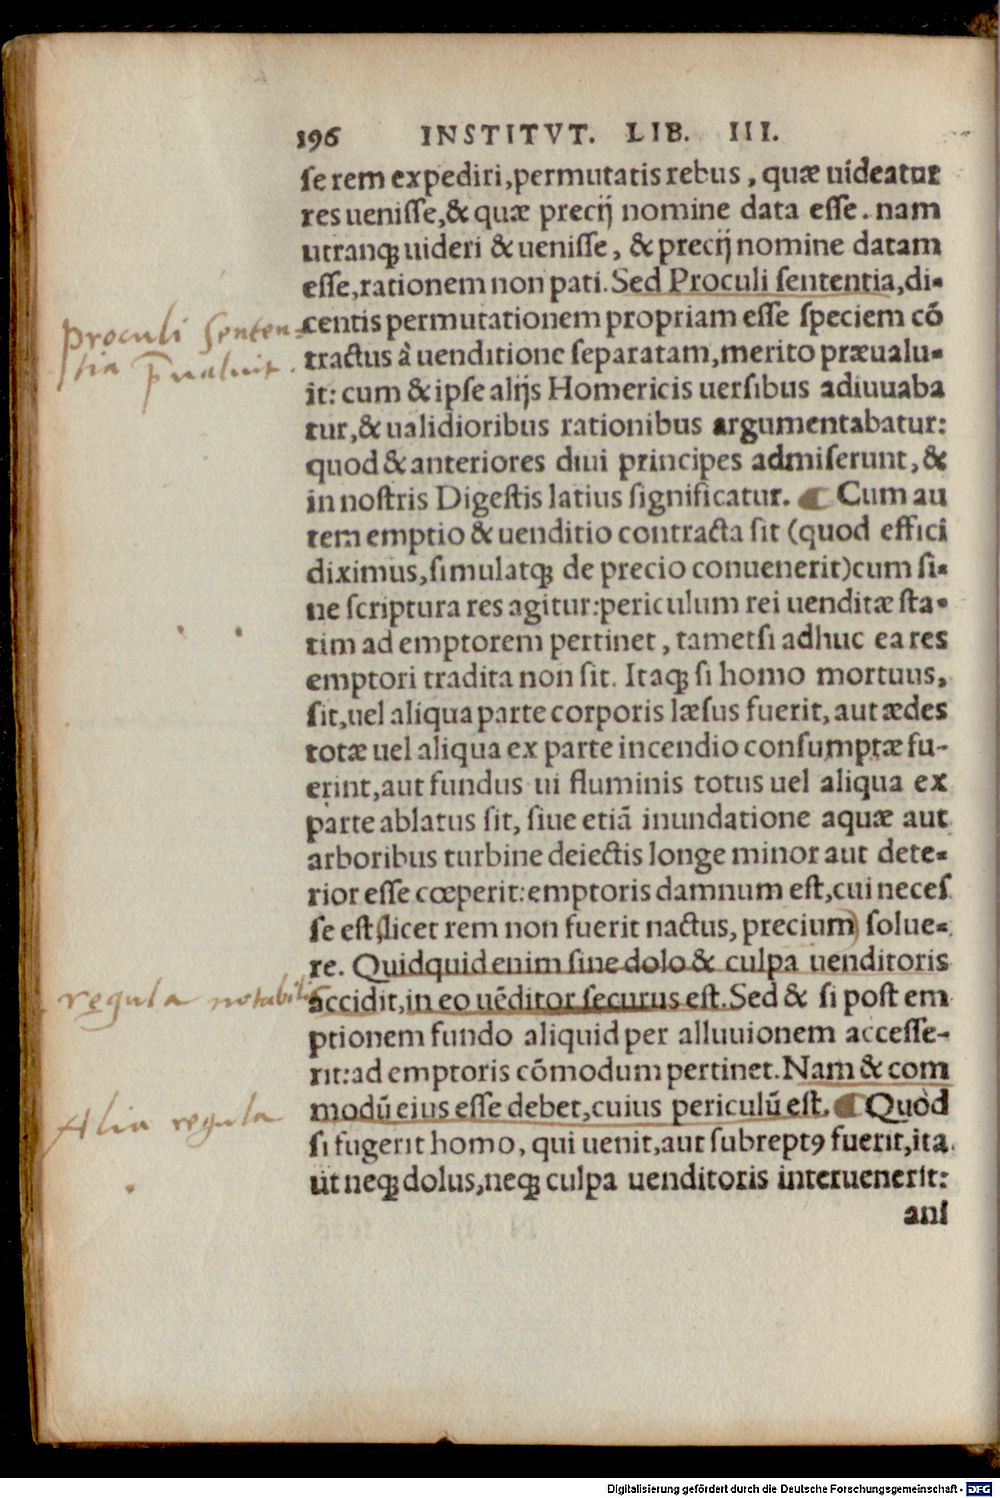 196 INSTITVT. LIB. III.
se rem expediri, permutatis rebus, quæ uideatur
res uenisse, & quæ precij nomine data esse. nam
utranq; uideri & uenisse, & precij nomine datam
esse, rationem non pati. Sed Proculi sententia, di-
centis permutationem propriam esse speciem cō
tractus à uenditione separatam, merito præualu-
it: cum & ipse alijs Homericis uersibus adiuuaba
tur, & ualidioribus rationibus argumentabatur:
quod & anteriores diui principes admiserunt, &
in nostris Digestis latius significatur. ¶ Cum au
tem emptio & uenditio contracta sit (quod effici
diximus, simulatq; de precio conuenerit) cum si-
ne scriptura res agitur: periculum rei uenditæ sta-
tim ad emptorem pertinet, tametsi adhuc ea res
emptori tradita non sit. Itaq; si homo mortuus,
sit, uel aliqua parte corporis læsus fuerit, aut ædes
totæ uel aliqua ex parte incendio consumptæ fu-
erint, aut fundus ui fluminis totus uel aliqua ex
parte ablatus sit, siue etiā inundatione aquæ aut
arboribus turbine deiectis longe minor aut dete-
rior esse cœperit: emptoris damnum est, cui neces
se est, licet rem non fuerit nactus, precium) solue-
re. Quidquid enim sine dolo & culpa uenditoris
accidit, in eo uēditor securus est. Sed & si post em
ptionem fundo aliquid per alluuionem accesse-
rit: ad emptoris cōmodum pertinet. Nam & com
modū eius esse debet, cuius periculū est. ¶ Quòd
si fugerit homo, qui uenit, aut subreptꝰ fuerit, ita
ut neq; dolus, neq; culpa uenditoris interuenerit:
ani
Proculi senten-
tia p̄ualuit.
regula notabilis
Alia regula
Digitalisierung gefördert durch die Deutsche Forschungsgemeinschaft - DFG